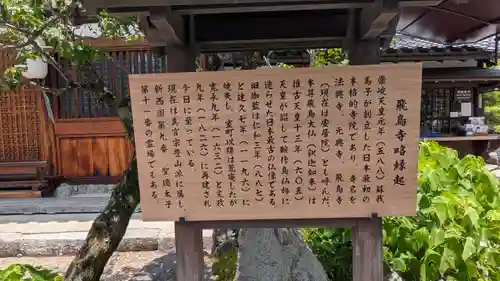 飛鳥寺略縁起
崇峻天皇元年(五八八)蘇我
馬子が創立した日本最初の
本格的寺院であり、寺名を
法興寺 元興寺 飛鳥寺
(現在は安居院)とも呼んだ。
本尊飛鳥大仏(釈迦如来)は
推古天皇十三年(六〇五)
天皇が詔して鞍作鳥仏師に
造らせた日本最古の仏像である。
旧伽藍は仁和三年(八八七)
と建久七年(一一九六)に
焼失し、室町以降は荒廃したが
寛永九年(一六三二)と文政
九年(一八二六)に再建され
今日に至っている。
現在は真言宗豊山派に属し
新西国第九番 聖徳太子
第十一番の霊場でもある。